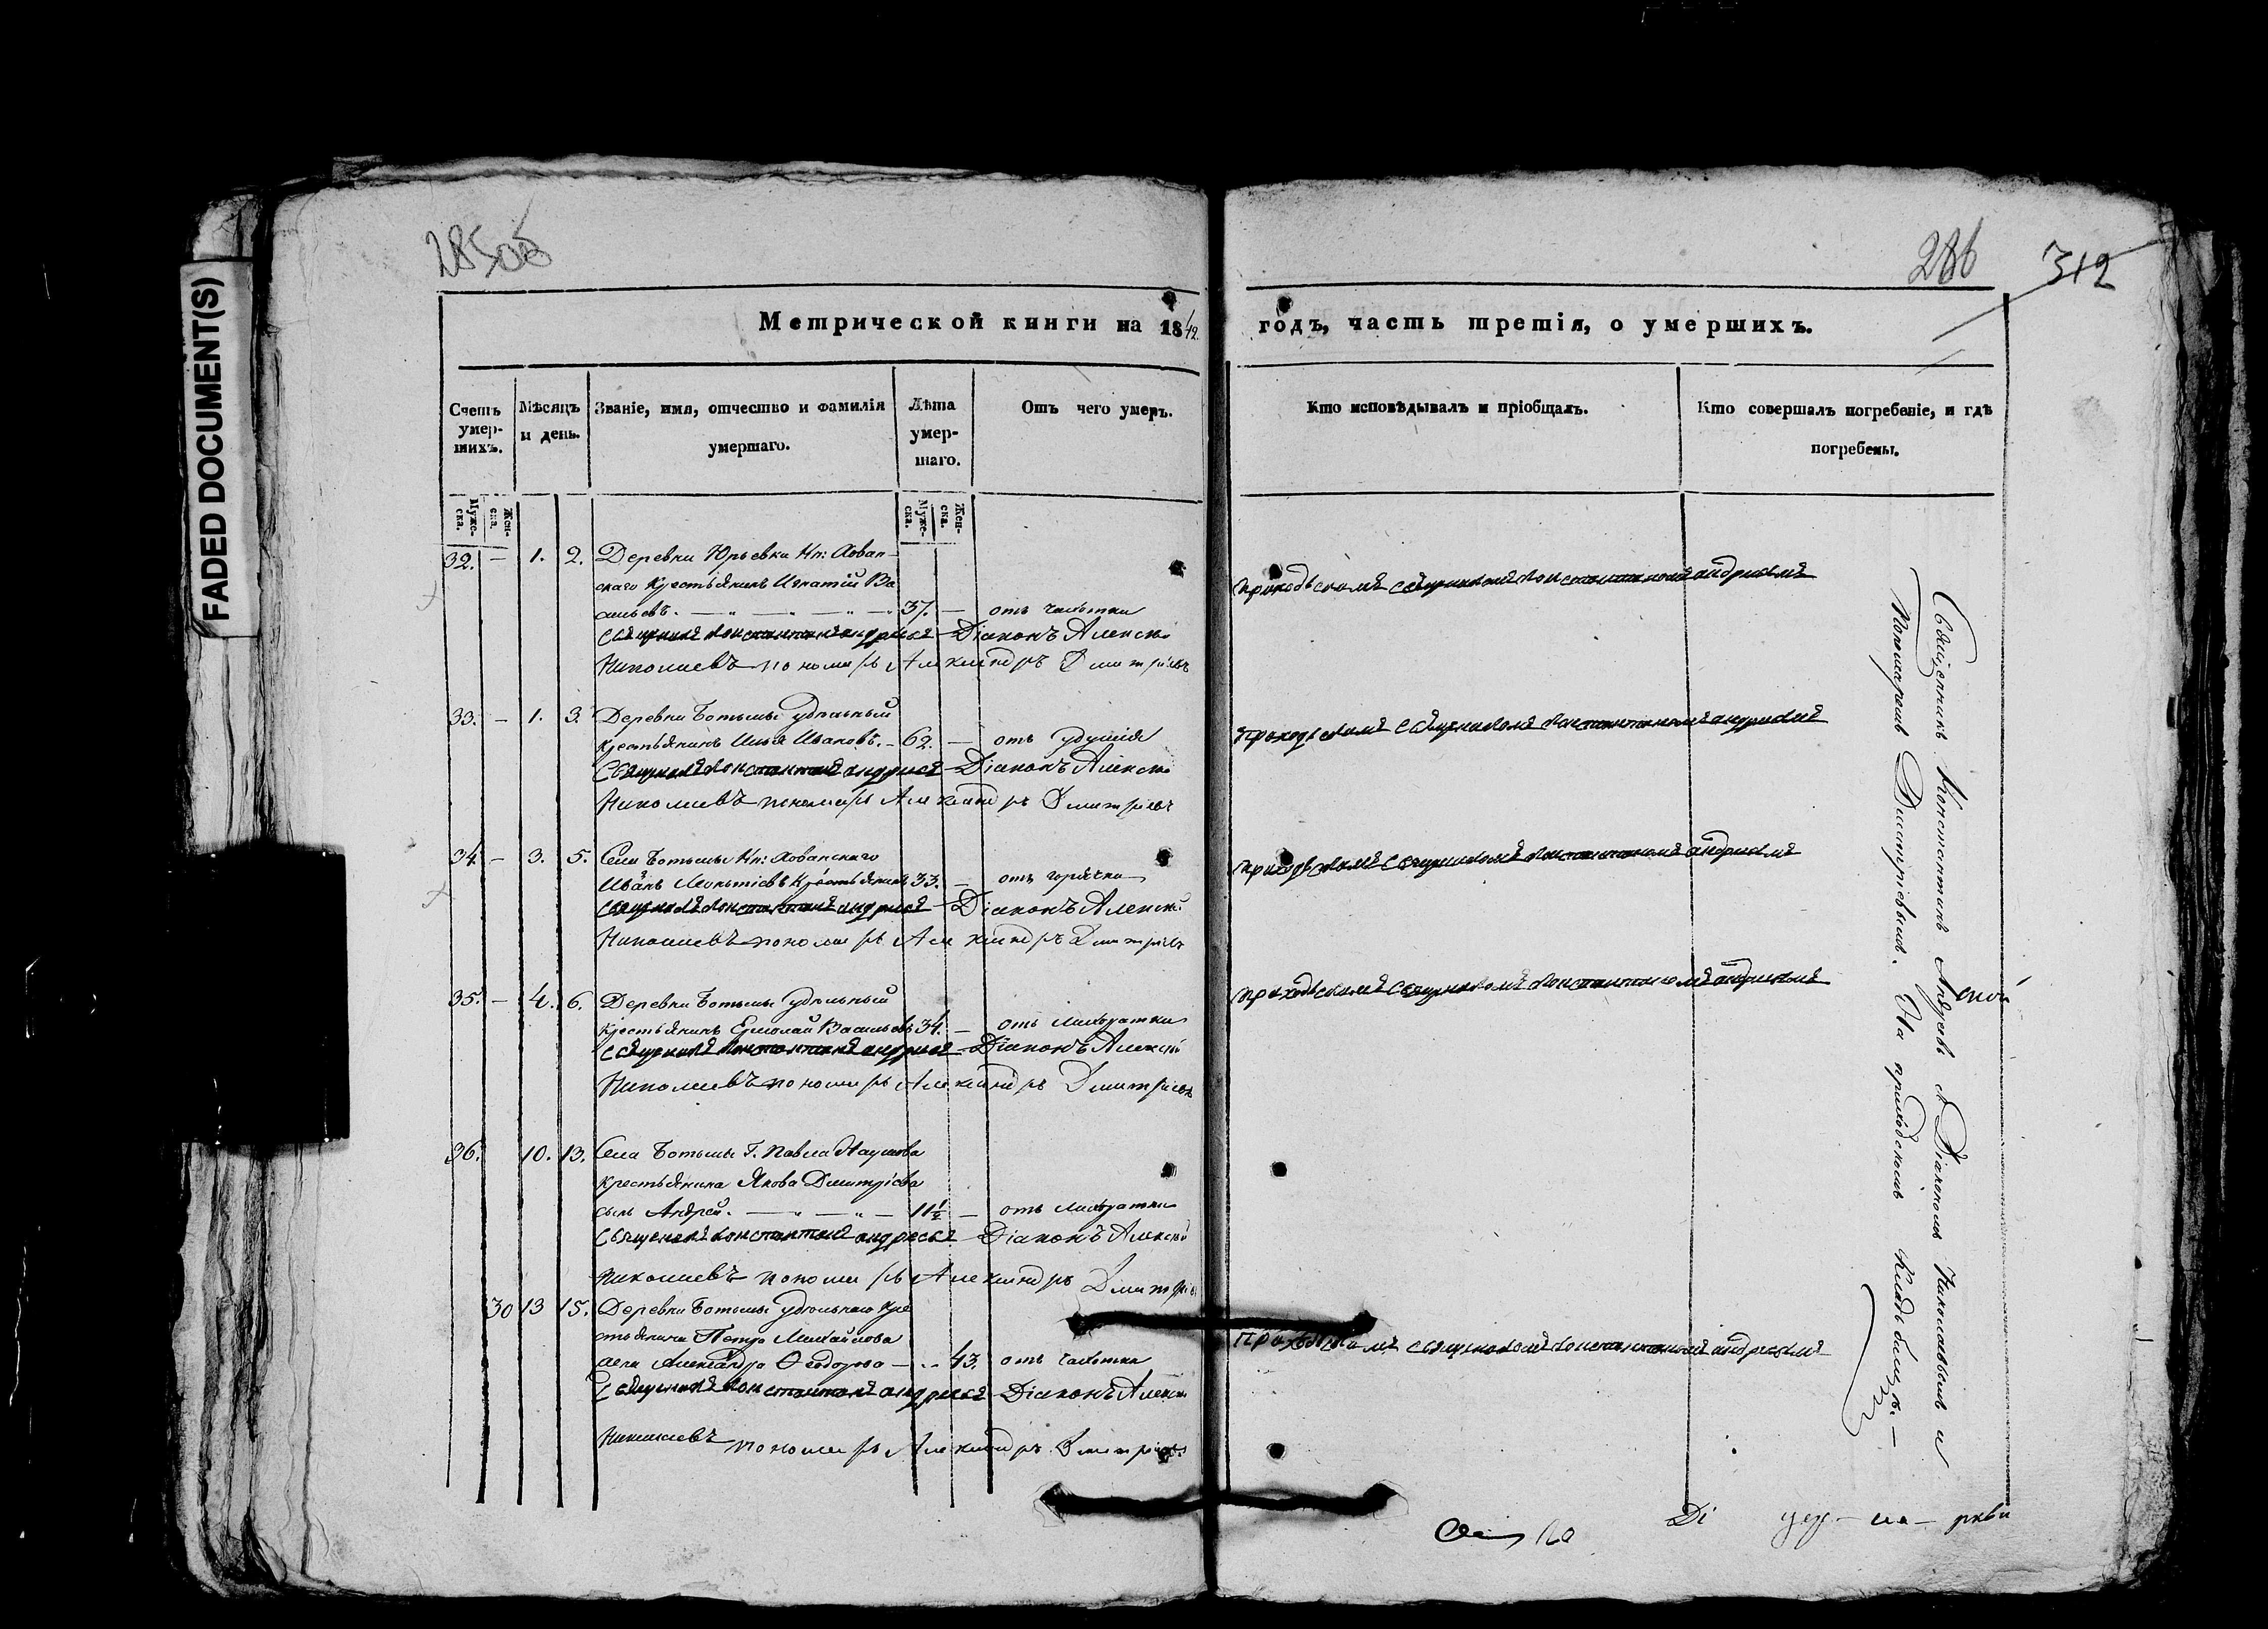 FADED DOCUMENT(S)
285об
286
312
Метрической книги на 1842 годъ, часть третія, о умершихъ.
Счетъ умер-
шихъ.
Мѣсяцъ
и день.
Званіе, имя, отчество и фамилія
умершаго.
Лѣта
умер-
шаго.
Отъ чего умеръ.
Кто исповѣдывалъ и пріобщалъ.
Кто совершалъ погребеніе, и гдѣ
погребены.
Муже-
ска.
Жен-
ска.
Муже-
ска.
Жен-
ска.
32. — 1. 2. Деревни Юрьевки Кн: Хован-
скаго крестьянинъ Игнатій Ва
сильевъ. 37. — отъ чахотки
Приходскимъ священникомъ Константиномъ Андреевымъ
Священникъ Константинъ Андреевъ Діаконъ Алексѣй
Николаевъ пономарь Александръ Дмитріевъ
33. — 1. 3. Деревни Ботьмы удѣльный
крестьянинъ Илья Ивановъ. — 62. — отъ удушія
Приходскимъ священникомъ Константиномъ Андреевымъ
Священникъ Константинъ Андреевъ Діаконъ Алексѣй
Николаевъ пономарь Александръ Дмитріевъ
34. — 3. 5. Села Ботьмы Кн: Хованскаго
Иванъ Леонтіевъ крестьянинъ 33. — отъ горячки
Приходскимъ священникомъ Константиномъ Андреевымъ
Священникъ Константинъ Андреевъ Діаконъ Алексѣй
Николаевъ пономарь Александръ Дмитріевъ
35. — 4. 6. Деревни Ботьмы удѣльный
крестьянинъ Ермолай Васильевъ 34. — отъ лихоратки
Приходскимъ священникомъ Константиномъ Андреевымъ
Священникъ Константинъ Андреевъ Діаконъ Алексѣй
Николаевъ пономарь Александръ Дмитріевъ
36. 10. 13. Села Ботьмы Г. Павла Наумова
крестьянина Якова Дмитріева
сынъ Андрей. 11½ — отъ лихоратки
Священникъ Константинъ Андреевъ Діаконъ Алексѣй
Николаевъ пономарь Александръ Дмитріевъ
30 13 15. Деревни Ботьмы удѣльнаго кре
стьянина Петра Михайлова
жена Александра Ѳеодорова — 43. отъ чахотки
Приходскимъ священникомъ Константиномъ Андреевымъ
Священникъ Константинъ Андреевъ Діаконъ Алексѣй
Николаевъ пономарь Александръ Дмитріевъ
Священникъ Константинъ Андреевъ съ Діакономъ Николаевымъ и
Пономаремъ Дмитріевымъ. На приходскомъ кладбищѣ. —
ской
Ді
цер — на — ркви